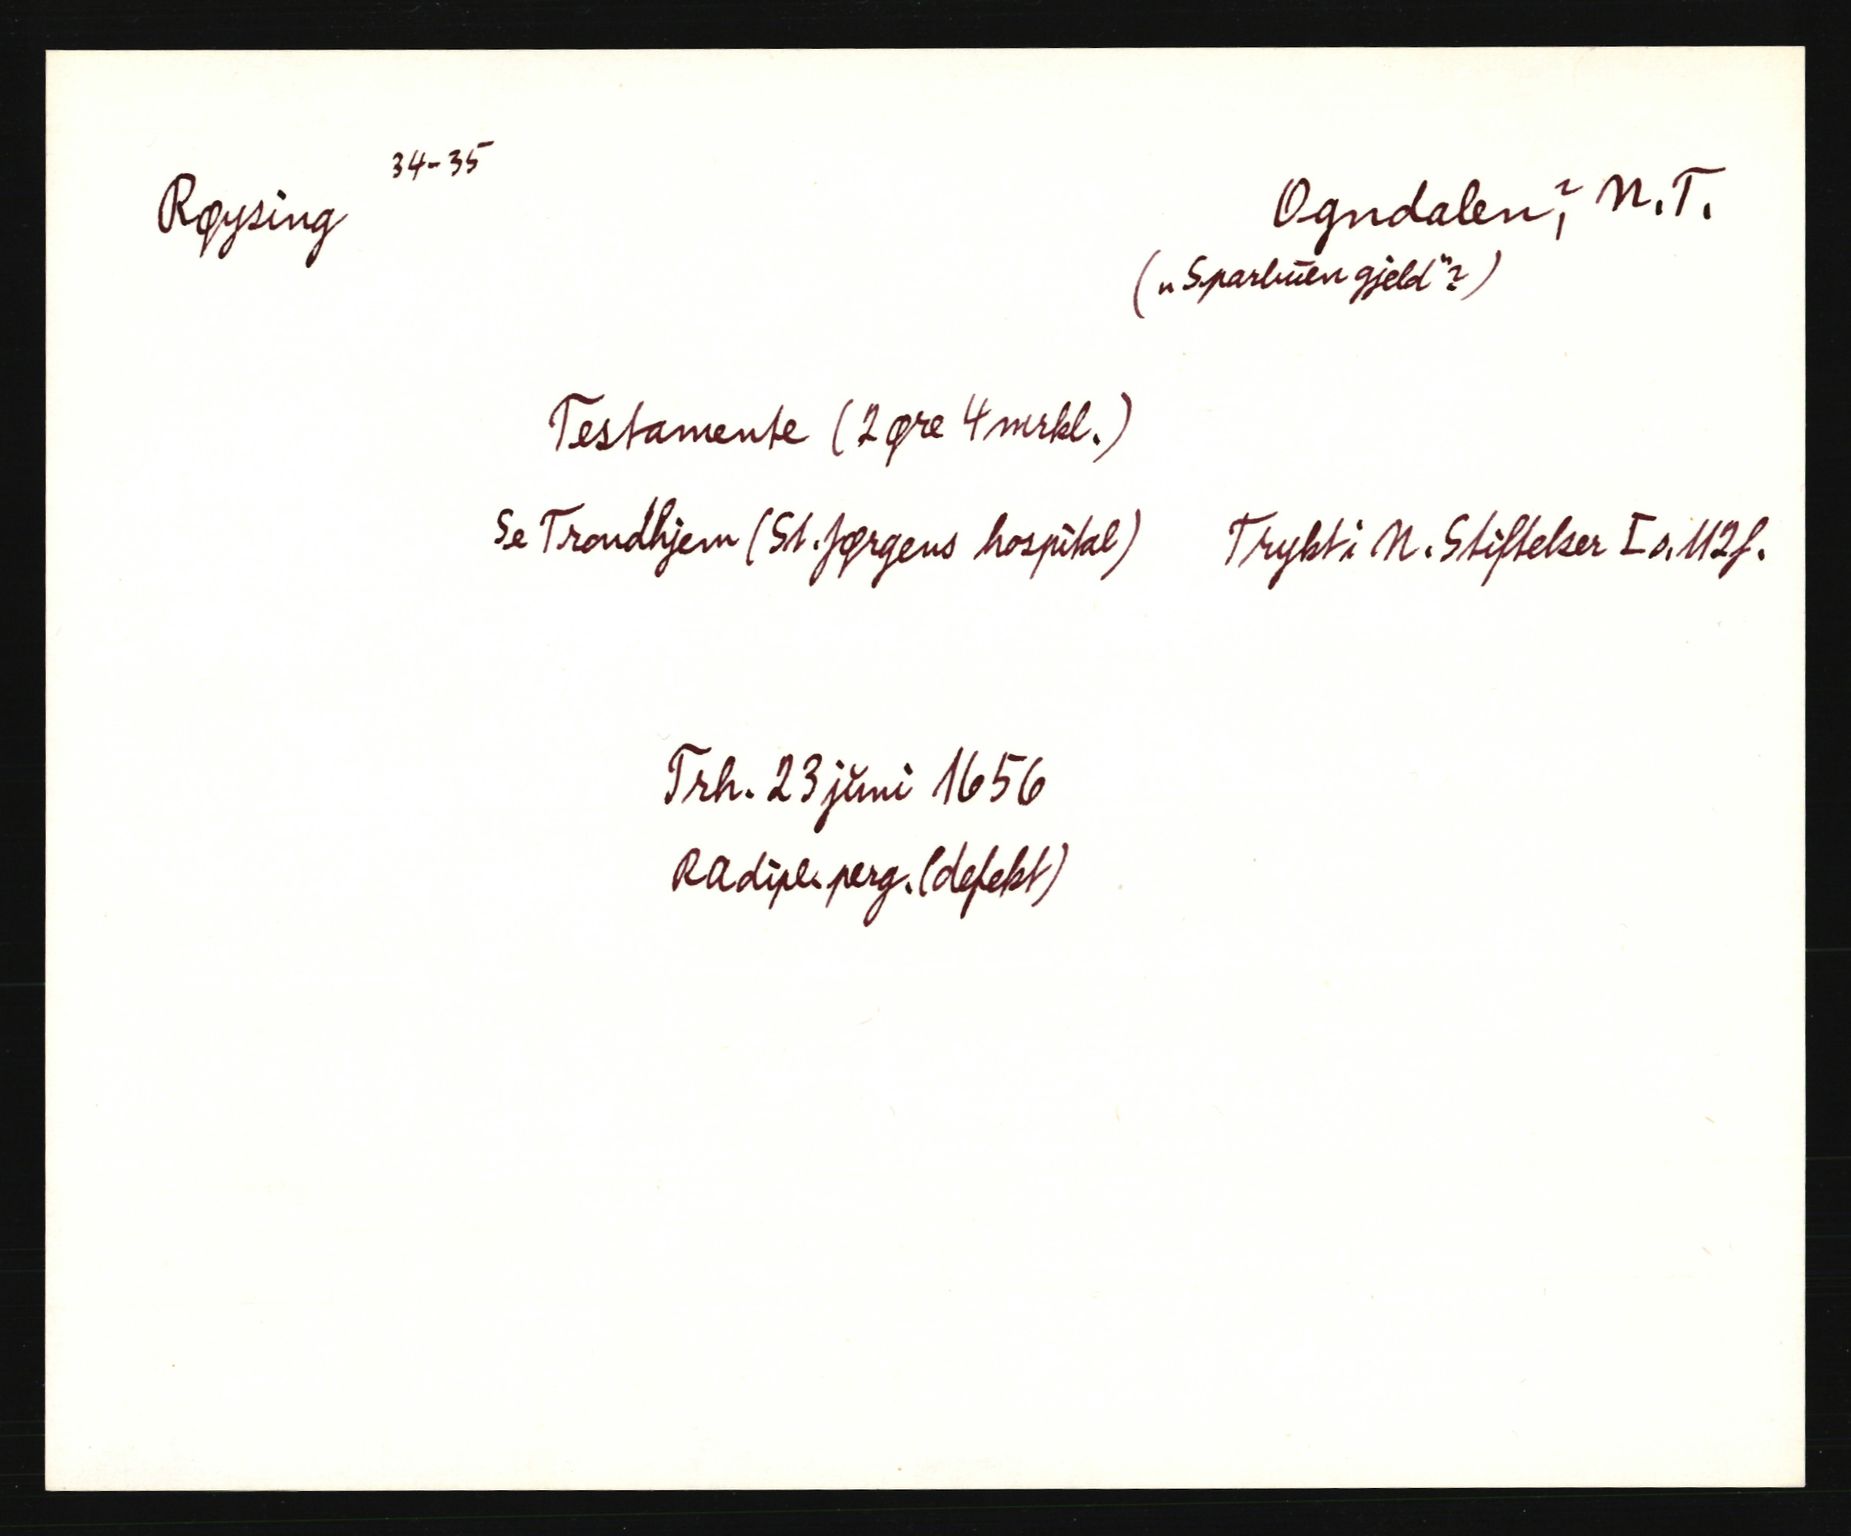 Røysing 34-35
Ogndalen?, N.T.
(„Sparbuen gjeld"?)
Testamente (2 øre 4 mrkl.)
Se Trondhjem (St. Jørgens hospital) Trykt i N. Stiftelser I s. 112f.
Trh. 23 juni 1656
RA dipl. perg. (defekt)